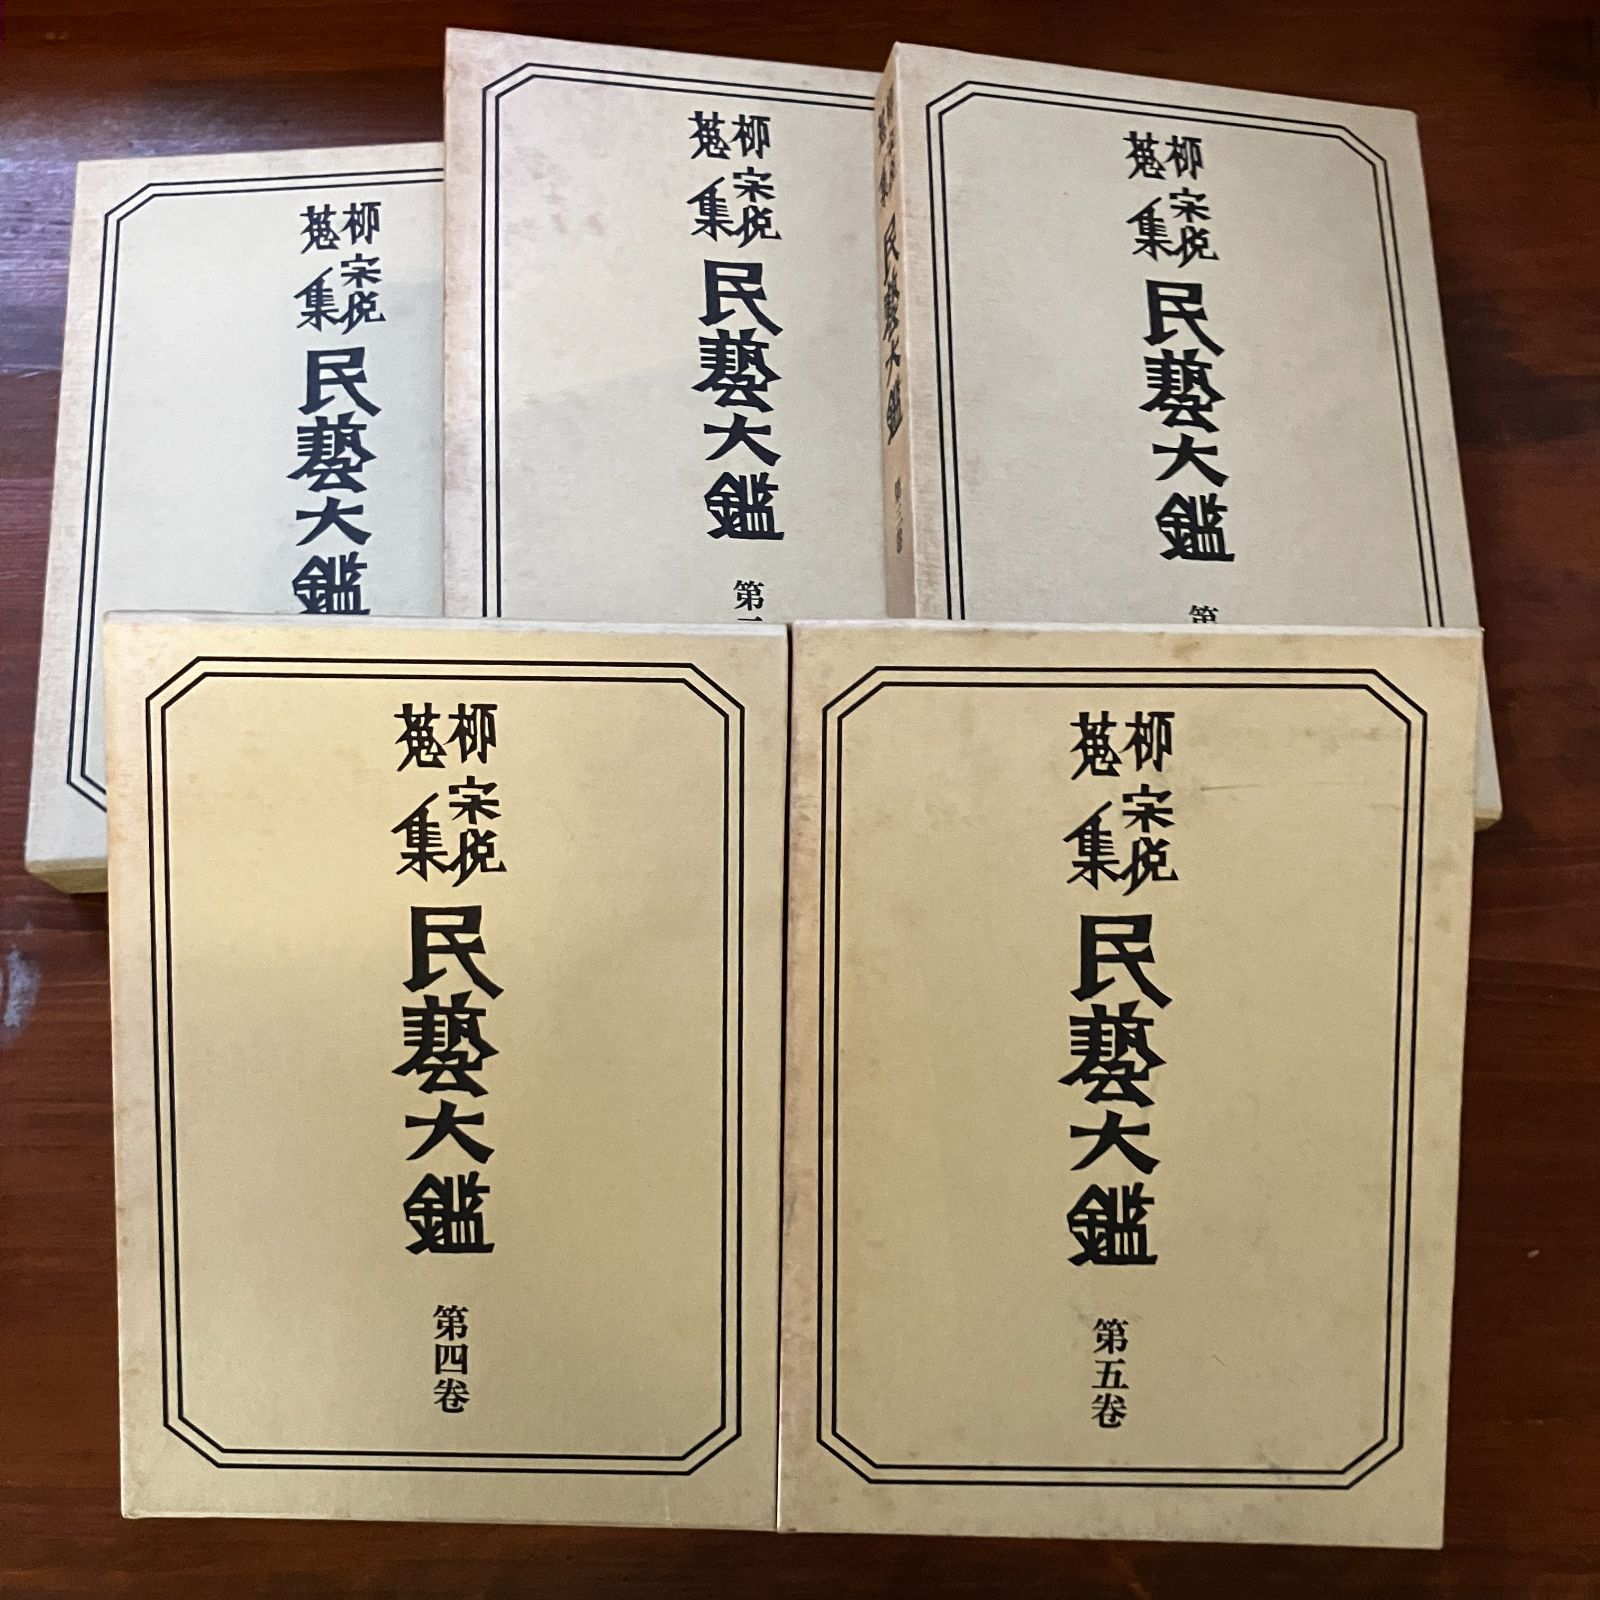 柳宗悦
蒐集
民藝大鑑
柳宗悦
蒐集
民藝大鑑
第二
柳宗悦
蒐集
民藝大鑑
第
民藝大鑑
第三巻
柳宗悦
蒐集
民藝大鑑
第四巻
柳宗悦
蒐集
民藝大鑑
第五巻